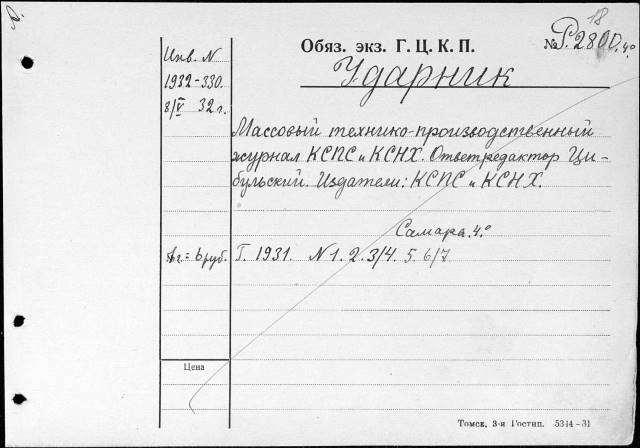 18
Обяз. экз. Г. Ц. К. П. № Р.2800.4º
Инв. N
1932-330.
8/V 32 г.
Ударник
Массовый технико-производственный
журнал КСПС и КСНХ. Ответредактор Ци-
бульский. Издатели: КСПС и КСНХ.
Самара. 4.º
г.= 6 руб. Г. 1931. N 1. 2. 3/4. 5. 6/7.
Цена
Томск, 3-я Гостип. 5344-31